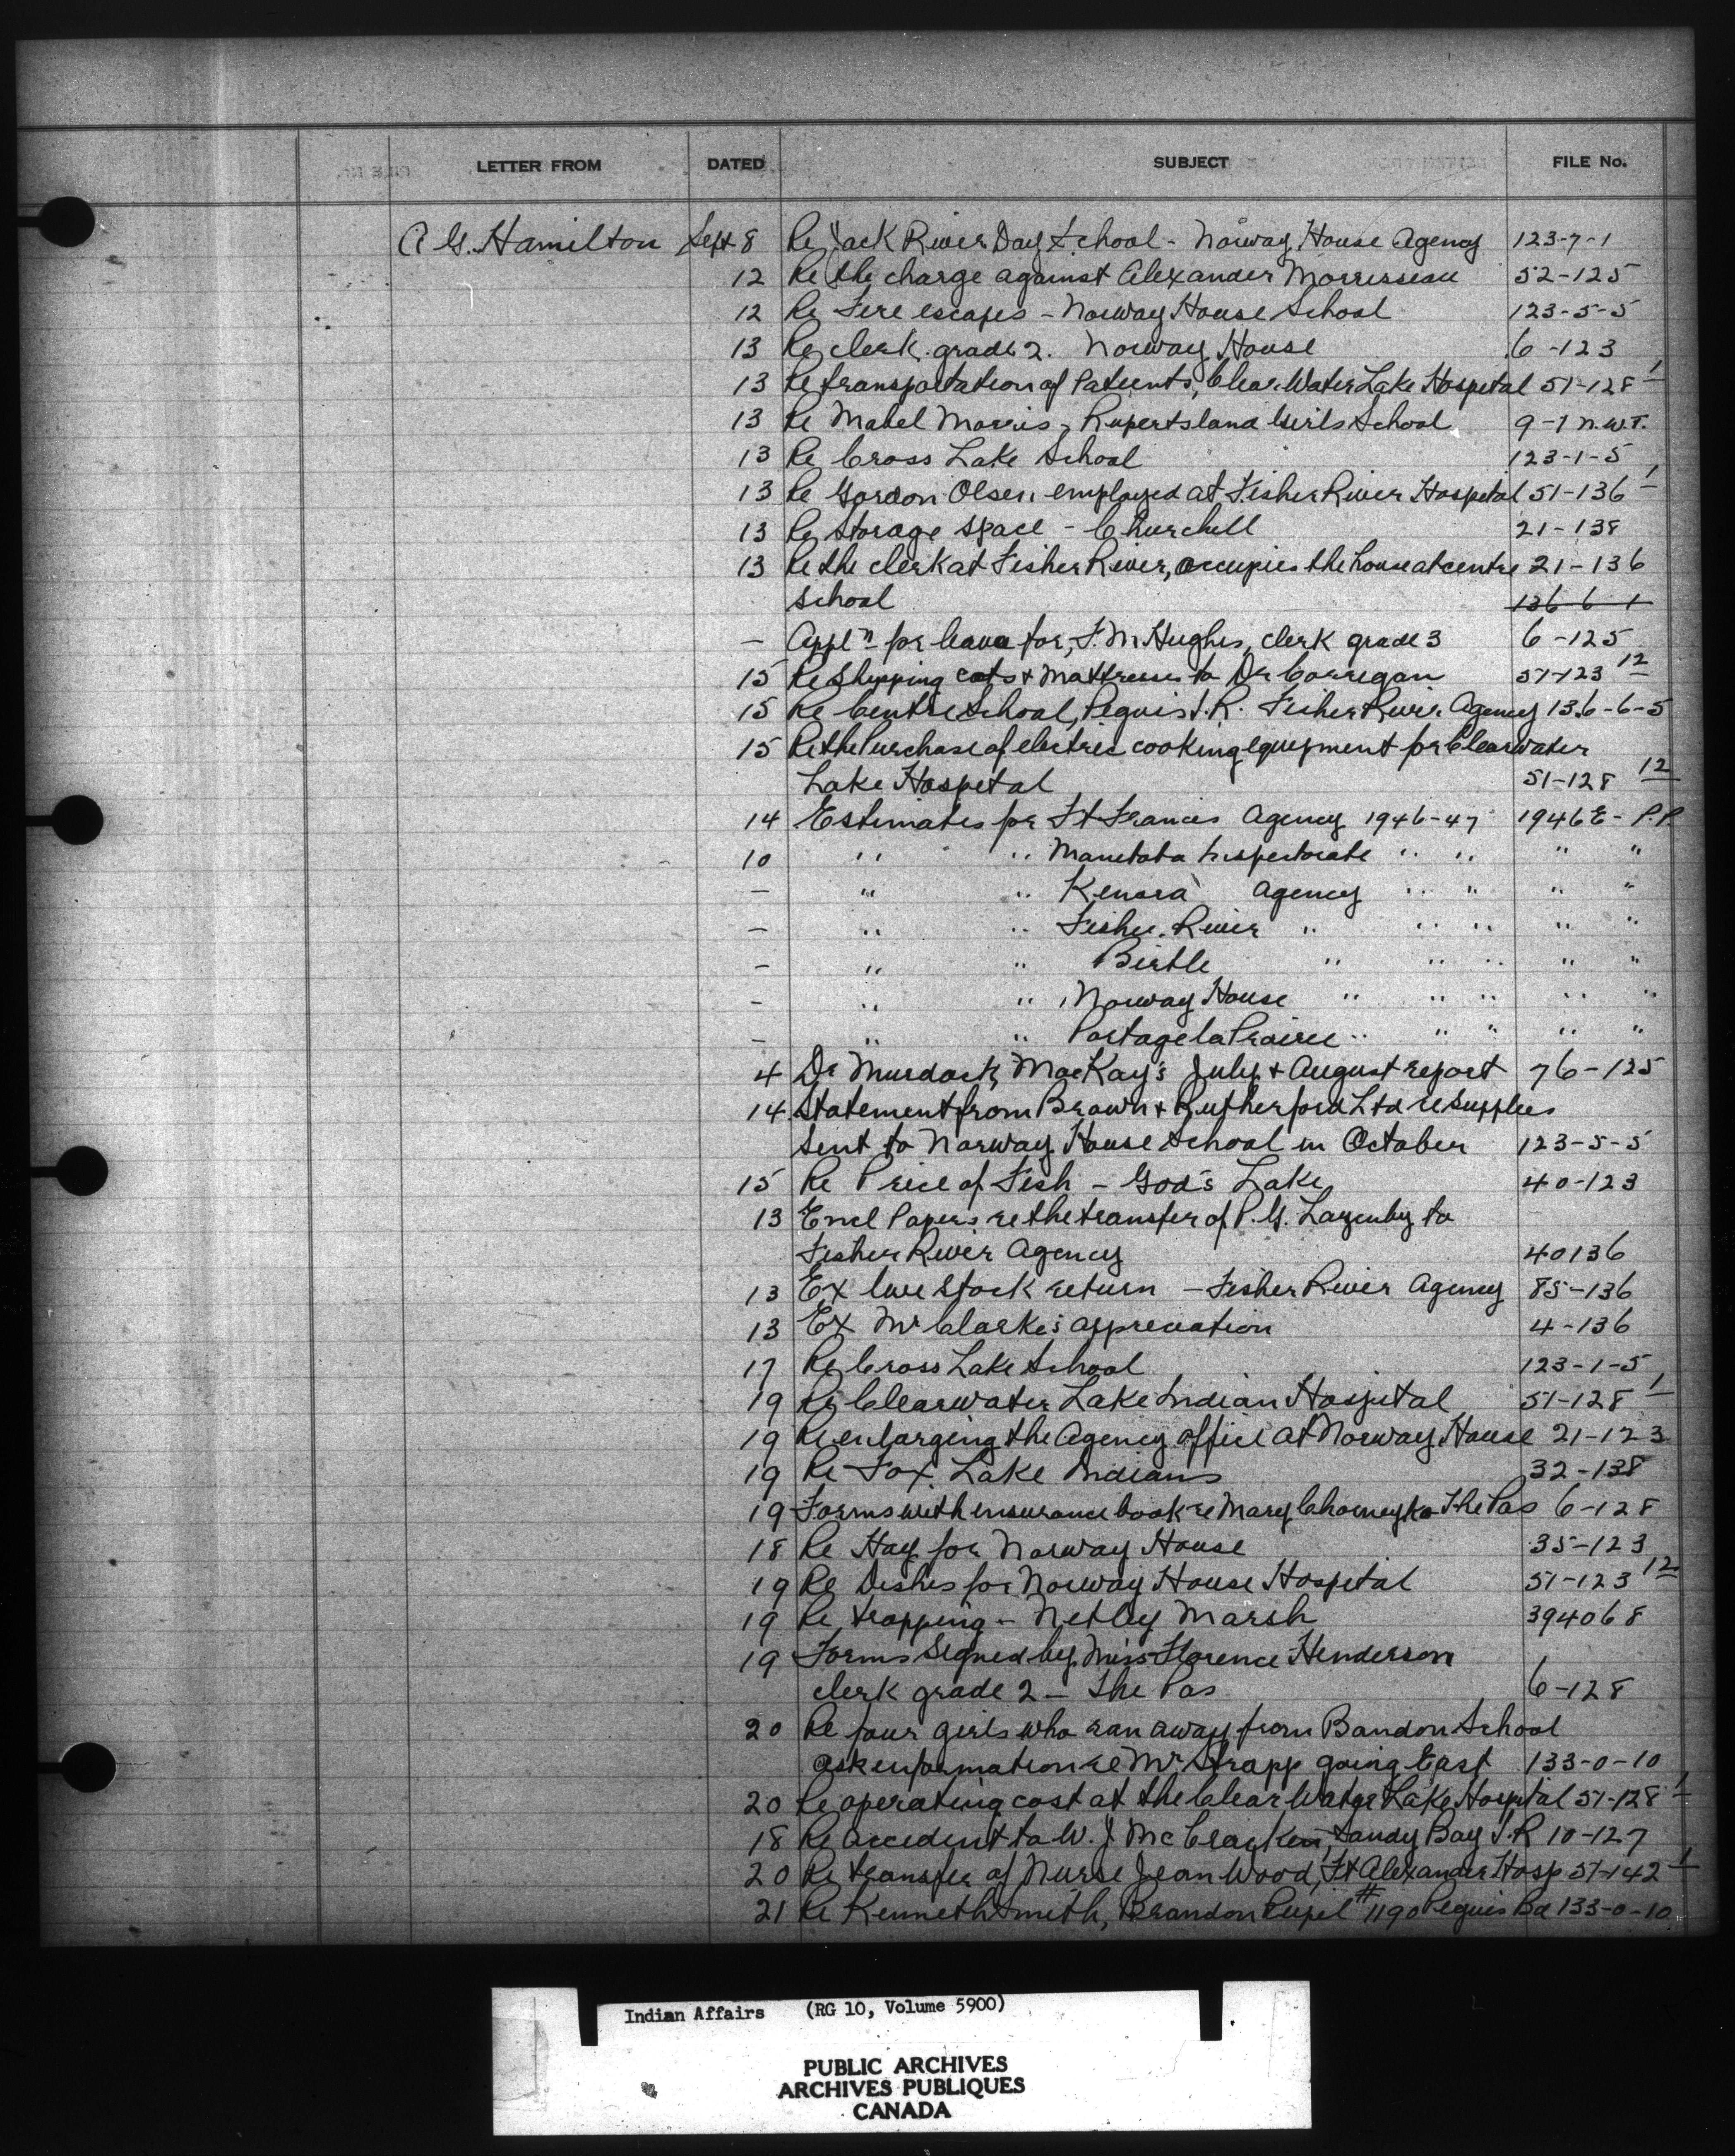 LETTER FROM DATED SUBJECT FILE No.
A G. Hamilton Sept 8 Re Jack River Day School - Norway House Agency 123-7-1
12 Re the charge against Alexander Morrisseau 52-125
12 Re Fire escapes - Norway House School 123-5-5
13 Re clerk grade 2. Norway House 6-123
13 Re transportation of Patients, Clear Water Lake Hospital 51-128 1
13 Re Mabel Morris, Rupertsland Girls School 9-1 N.W.T.
13 Re Cross Lake School 123-1-5
13 Re Gordon Olsen employed at Fisher River Hospital 51-136 1
13 Re Storage space - Churchill 21-138
13 Re the clerk at Fisher River, occupies the house at centre 21-136
School 136 6 1
- Appln for leave for, F. M Hughes, clerk grade 3 6-125
15 Re Shipping cots & Mattresses to Dr Corrigan 51-123 12
15 Re Centre School, Peguis I.R. Fisher River Agency 136-6-5
15 Re the Purchase of electric cooking equipment for Clearwater
Lake Hospital 51-128 12
14 Estimates for Ft Francis Agency 1946-47 1946 E - P.P.
10 " " Manitoba Inspectorate " " " "
- " " Kenora Agency " " " "
- " " Fisher River " " " " "
- " " Birtle " " " " "
- " " Norway House " " " " "
- " " Portage la Prairie " " " " "
4 Dr Murdock MacKay's July & August report 76-125
14 Statement from Brown & Rutherford Ltd re supplies
sent to Norway House School in October 123-5-5
15 Re Price of Fish - God's Lake 40-123
13 Encl Papers re the transfer of P. G. Lazenby to
Fisher River Agency 40136
13 Ex live stock return - Fisher River Agency 85-136
13 Ex Mr Clarke's appreciation 4-136
17 Re Cross Lake School 123-1-5
19 Re Clearwater Lake Indian Hospital 51-128 1
19 Re enlarging the Agency office at Norway House 21-123
19 Re Fox Lake Indians 32-138
19 Forms with insurance book re Mary The Pas 6-128
18 Re Hay for Norway House 35-123
19 Re Dishes for Norway House Hospital 51-123 12
19 Re trapping - Netley Marsh 394068
19 Forms Signed by Miss Florence Henderson
clerk grade 2 - The Pas 6-128
20 Re four girls who ran away from Bandon School
ask information re Mr Strapp going East 133-0-10
20 Re operating cost at the Clear Water Lake Hospital 51-128 1
18 Re accident to W. J McCracken, Sandy Bay I.R 10-127
20 Re transfer of Nurse Jean Wood, Ft Alexander Hosp 51-142 1
21 Re Kenneth Smith, Brandon Pupil #1190 Peguis Bd 133-0-10
Indian Affairs (RG 10, Volume 5900)
PUBLIC ARCHIVES
ARCHIVES PUBLIQUES
CANADA